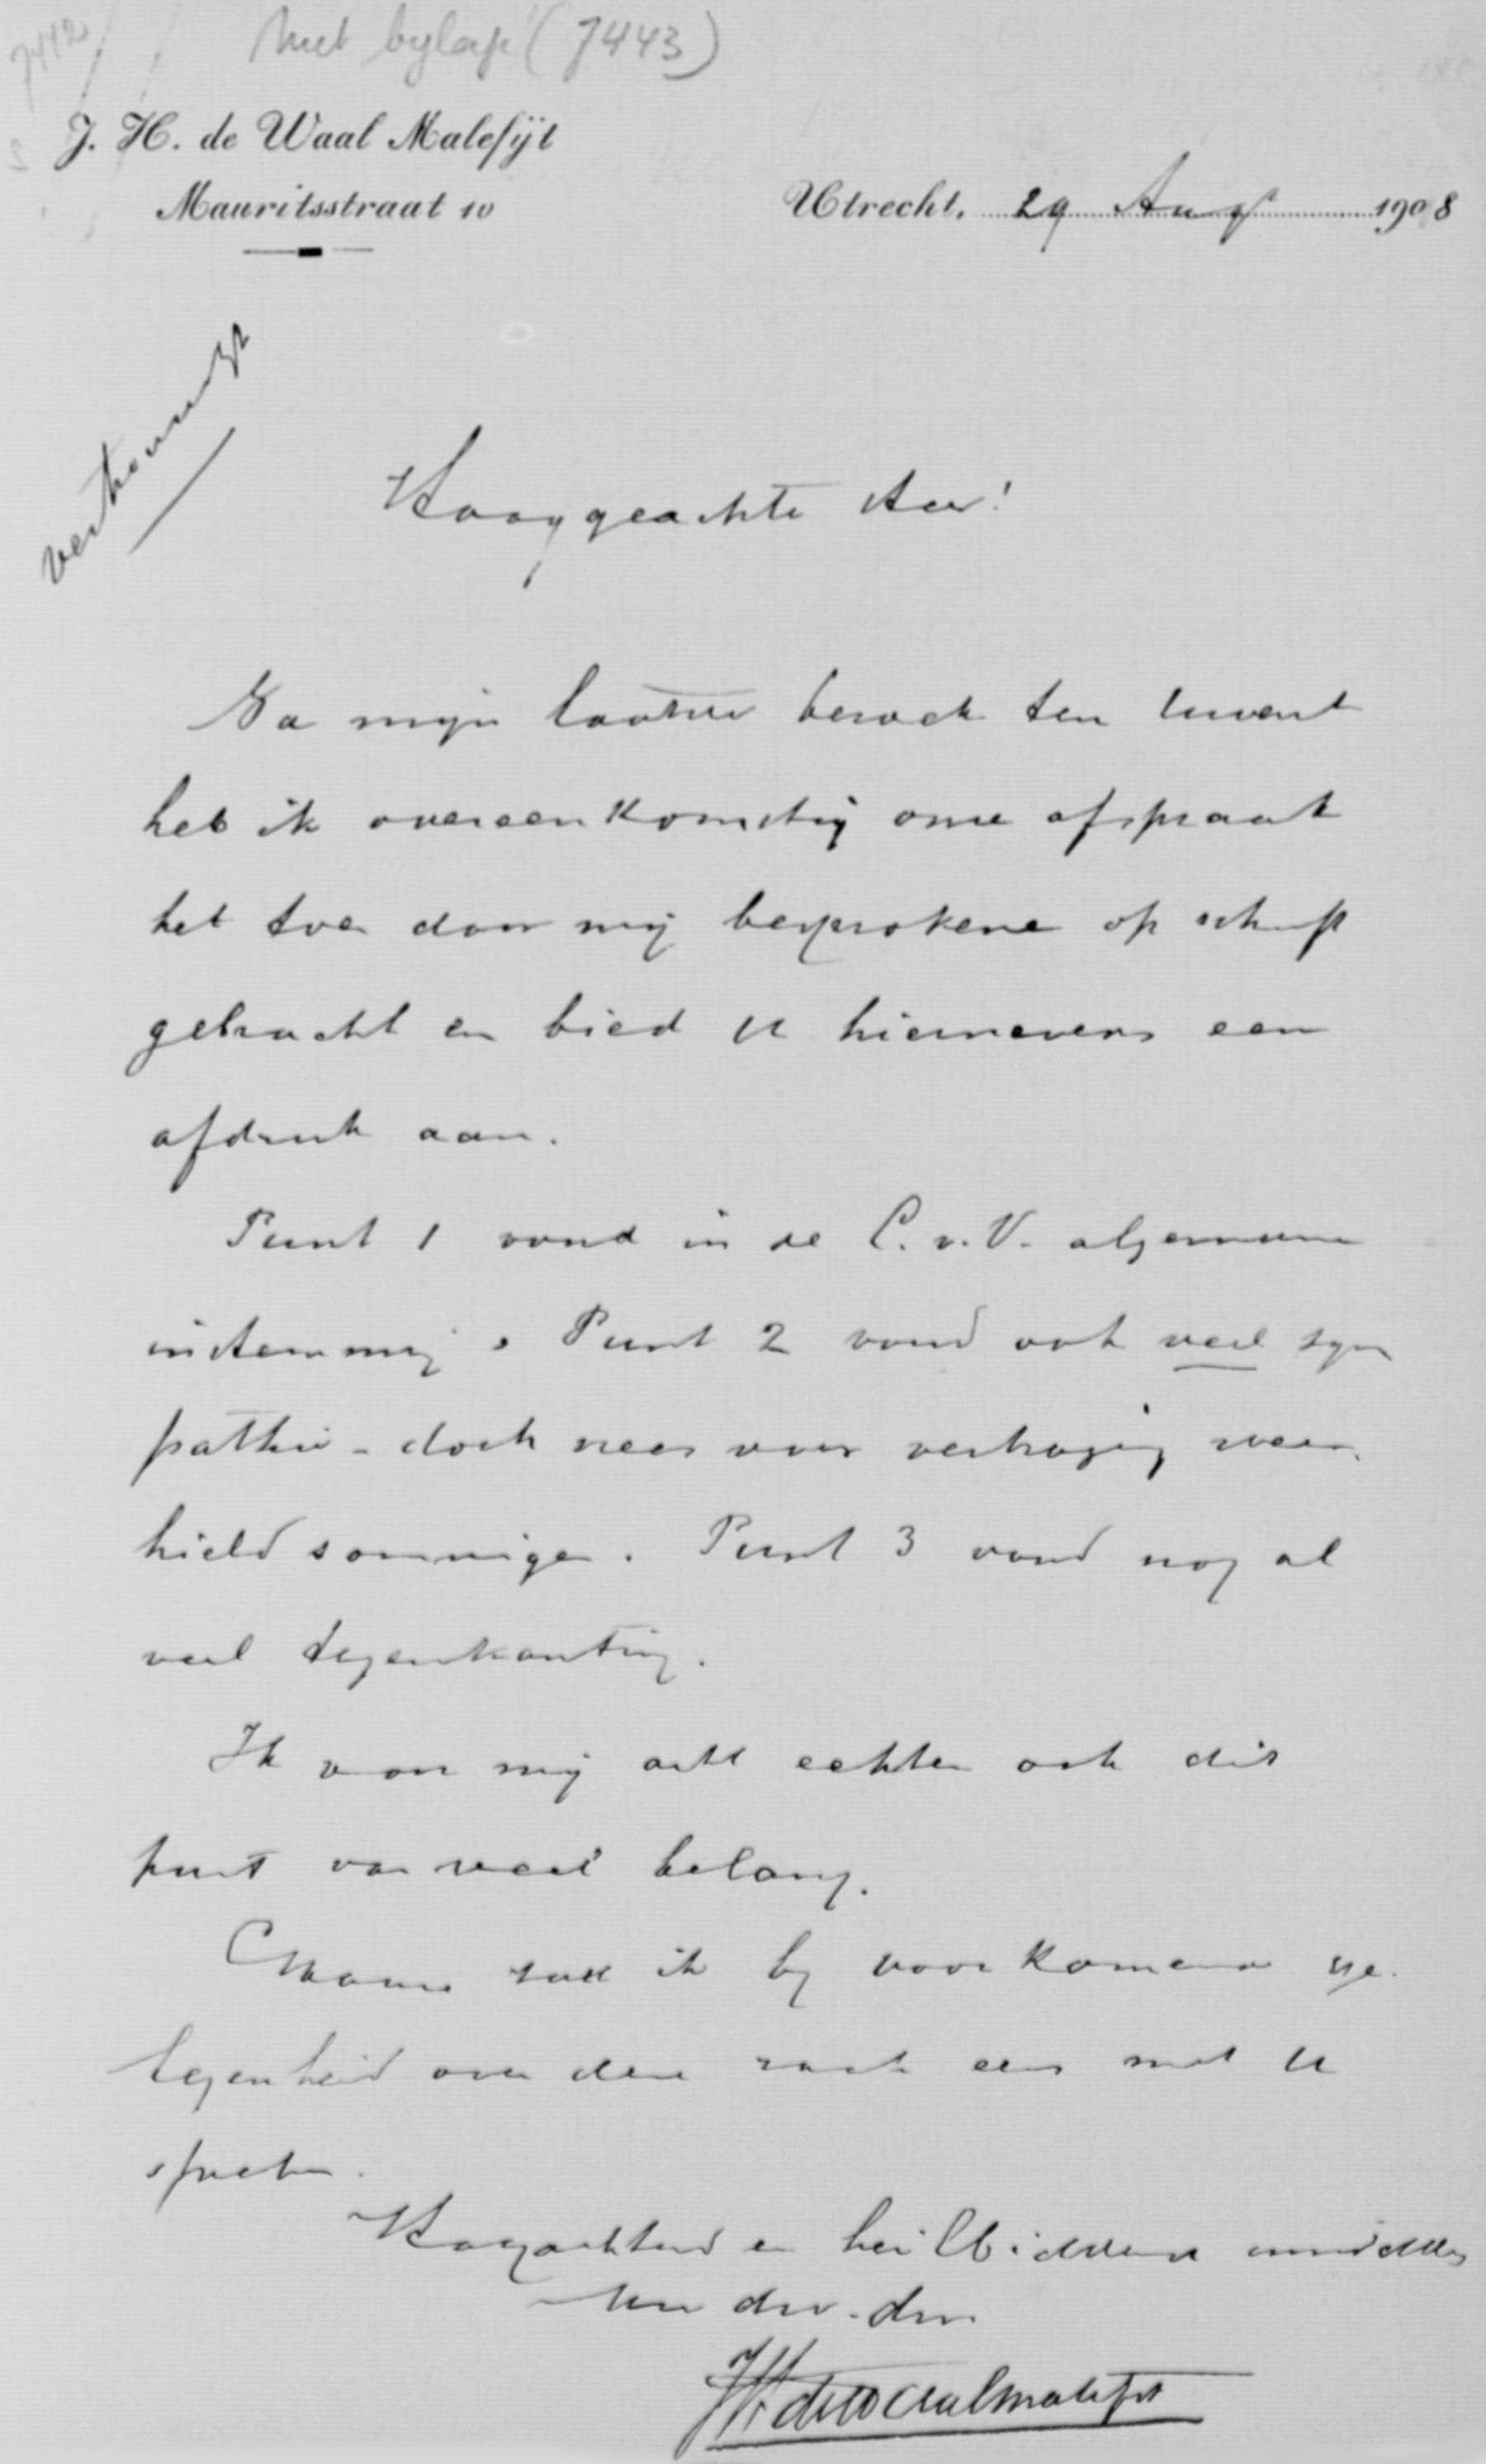 7412
Met bylage (7443)
J. H. de Waal Malefijt
Mauritsstraat 10
Utrecht, 29 Aug 1908
vertrouwelijk
Hooggeachte Heer!
Na mijn laatste bezoek ten uwent
heb ik overeenkomstig onze afspraak
het toen door mij besprokene op schrift
gebracht en bied U hiernevens een
afdruk aan.
Punt 1 vond in de C. v. V. algemeene
instemming. Punt 2 vond ook veel sym
pathie - doch vrees voor verhooging weer-
hield sommigen. Punt 3 vond nog al
veel tegenkanting.
Ik voor mij acht echter ook dit
punt van veel belang.
Gaarne zal ik bij voorkomende ge-
legenheid over deze zaak eens met U
spreken.
Hoogachtend en heilbiddend inmiddels
Uw dw. dnr.
JH de Waal Malefijt